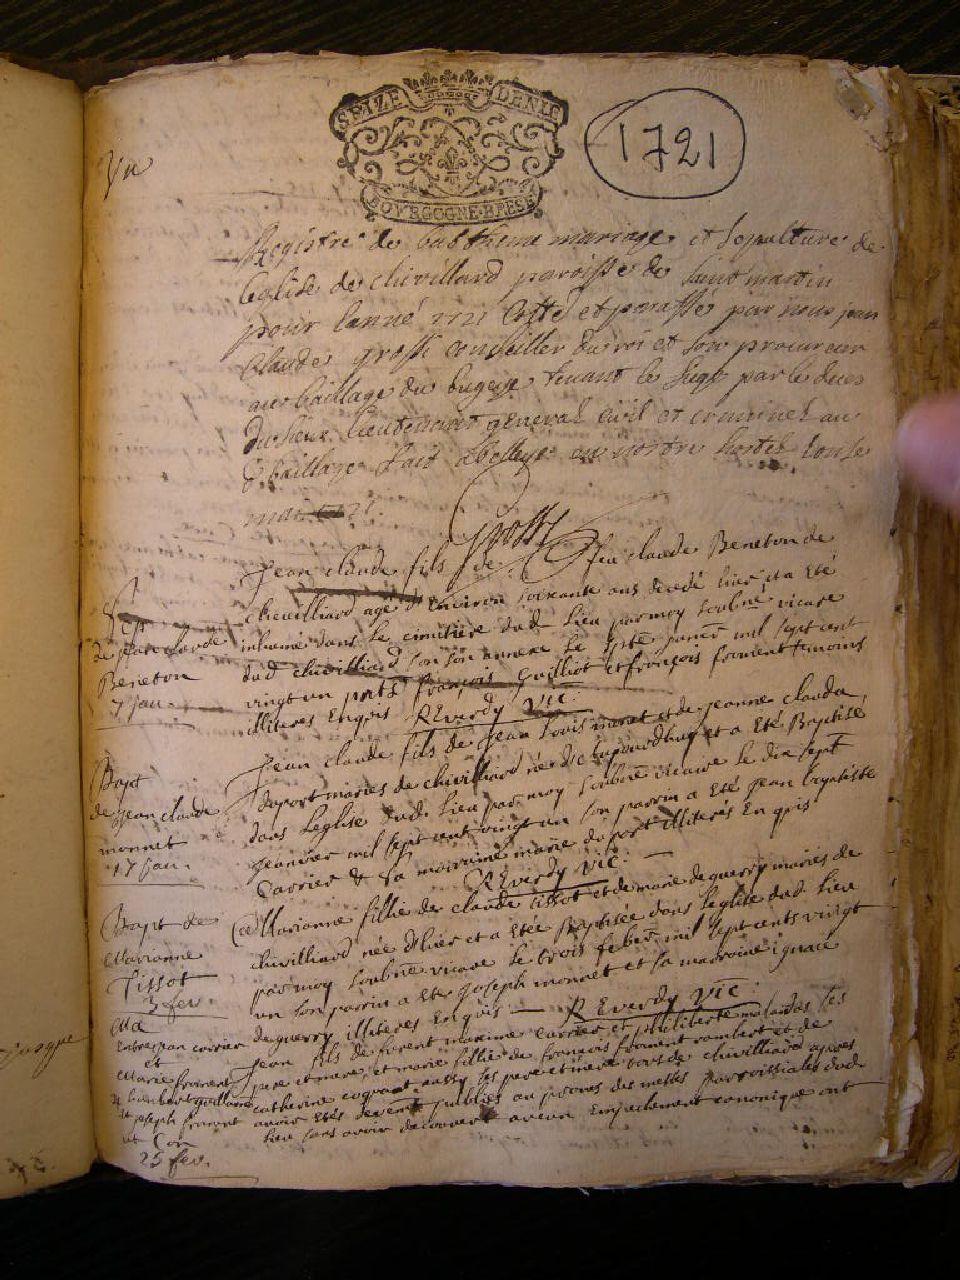 SEIZE DENIE
BOVRGOGNE·BRESSE
1721
Vu
Registre de babtheme mariage et sepulture de
leglise de chivillard paroisse de saint martin
pour lanné 1721 Cotté et paraffé par nous jean
Claude grossi conseiller du roi et son procureur
au baillage du bugey tenant le siege par le deces
du sieur lieutenant general civil et criminel au
baillage fait abelley en nostre hostel
mai 1721.
Grossi
Jean claude fils de feu claude Beneton de
chivilliard agé d'Environ soixante ans decedé hier, et a eté
inhumé dans le cimitiere dud. lieu par moy soubné vicaire
dud chivilliard son annexe le sept janer mil sept cent
vingt un puts françois Guilliot et françois froment temoins
illiteres Enquis REverdy Vic:
Sep.
de jean claude
Beneton
7 jan.
Jean claude fils de jean louis monet et de jeanne clauda
deport maries de chivilliard né aujourdhuy et a Eté Baptisé
dans leglise dud. lieu par moy soubné vicaire le dix sept
jeanvier mil sept cent vingt un son parrin a Eté jean baptiste
Carrier & sa mairaine marie deport illiterés Enquis
REverdy Vic:
Bapt
de Jean claude
monnet
17 jan.
Marianne fillie de claude tissot et de marie deguerry mariés de
chivilliard née d'hier et a etée Baptisée dans leglise dud. lieu
par moy soubné vicaire le trois feber mil sept cents vingt
un son parrin a Eté joseph monnet et sa madraine ignace
deguerry illiteres Enquis — REverdy Vic:
Bapt de
Marianne
Tissot
3 fev.
Jean fils de furent maxime carrier et philiberte malardes ses
pere et mere, et marie fillie de françois froment rambert et de
catherine cognant aussy ses pere et mere tous de chivilliard apres
avoir Etés devemt publiés au prones des messes parroissiales dud.
lieu sans avoir decouvert aucun Empechement canonique ont
Ma
Entre jean carrier
et
Marie froment
joseph froment
25 fev.
jusque